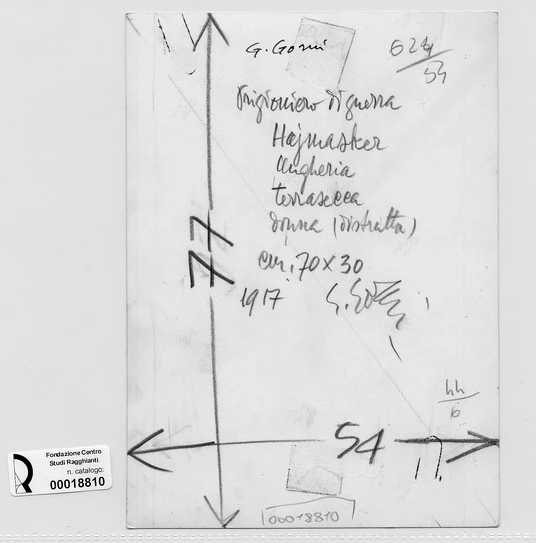 G. Gorni
624/54
Prigioniero di guerra
Hajmasker
Ungheria
terrasecca
donna (distrutta)
cm. 70 x 30
1917
77
44/6
54
17.
Fondazione Centro
Studi Ragghianti
n. catalogo:
00018810
00018810